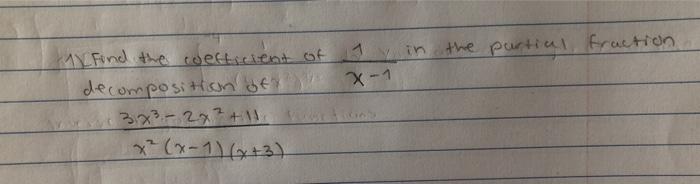 1) Find the coefficient of 1/(x-1) in the partial fraction
decomposition of
3x³-2x²+11
x²(x-1)(x+3)